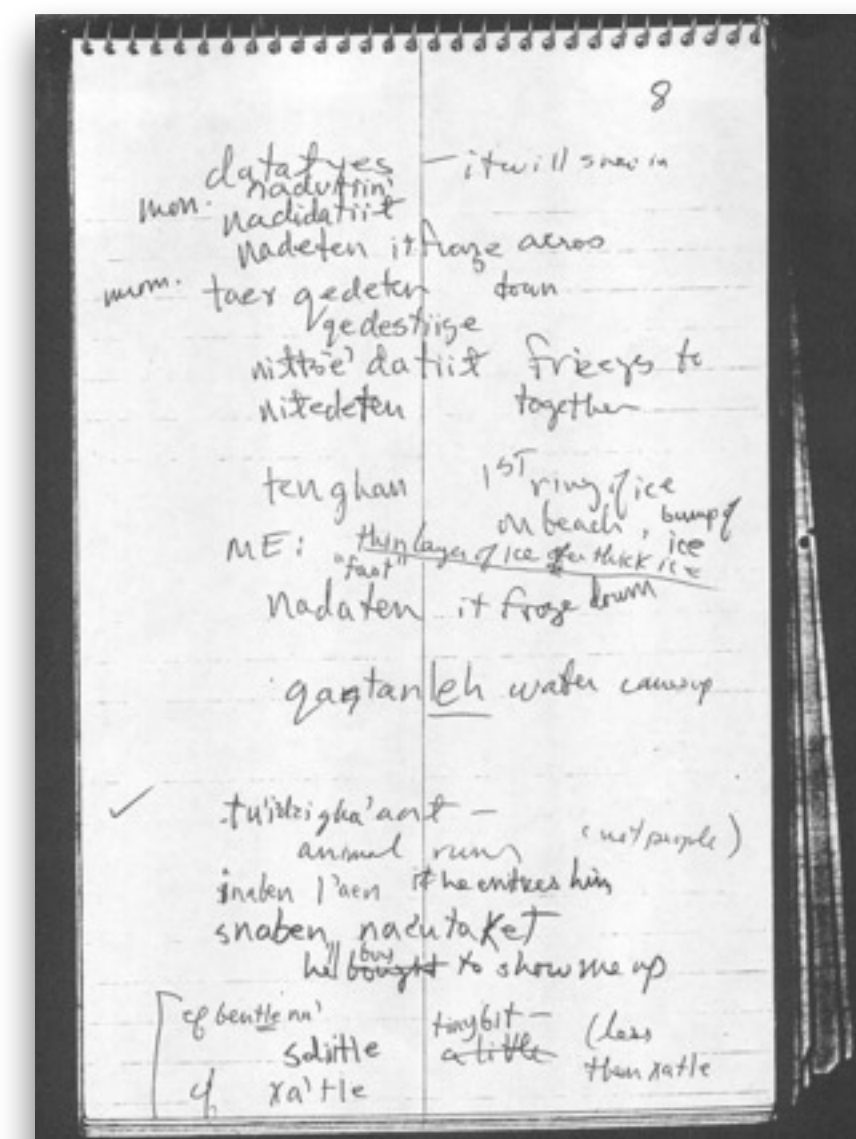 8
datatyes – it will snow in
nadvttini'
mom. nadidatiił
nadeten it froze across
mom. taex qedeten down
qedestiige
niłtsè' datiił freezes to
niłedeten together
tenghan 1ST ring of ice
on beach, bump of
ice
ME: thin layer of ice over thick ice
"fast"
nadaten it froze down
qantanleh water comes up
✓ tu'idzigha'aart –
animal runs (not people)
inaben l'aen if he entices him
snaben nacutaket
he'll buy bought to show me up
cf bentle na' tiny bit – (less
sdiitle a little than xatle
cf xa'tle